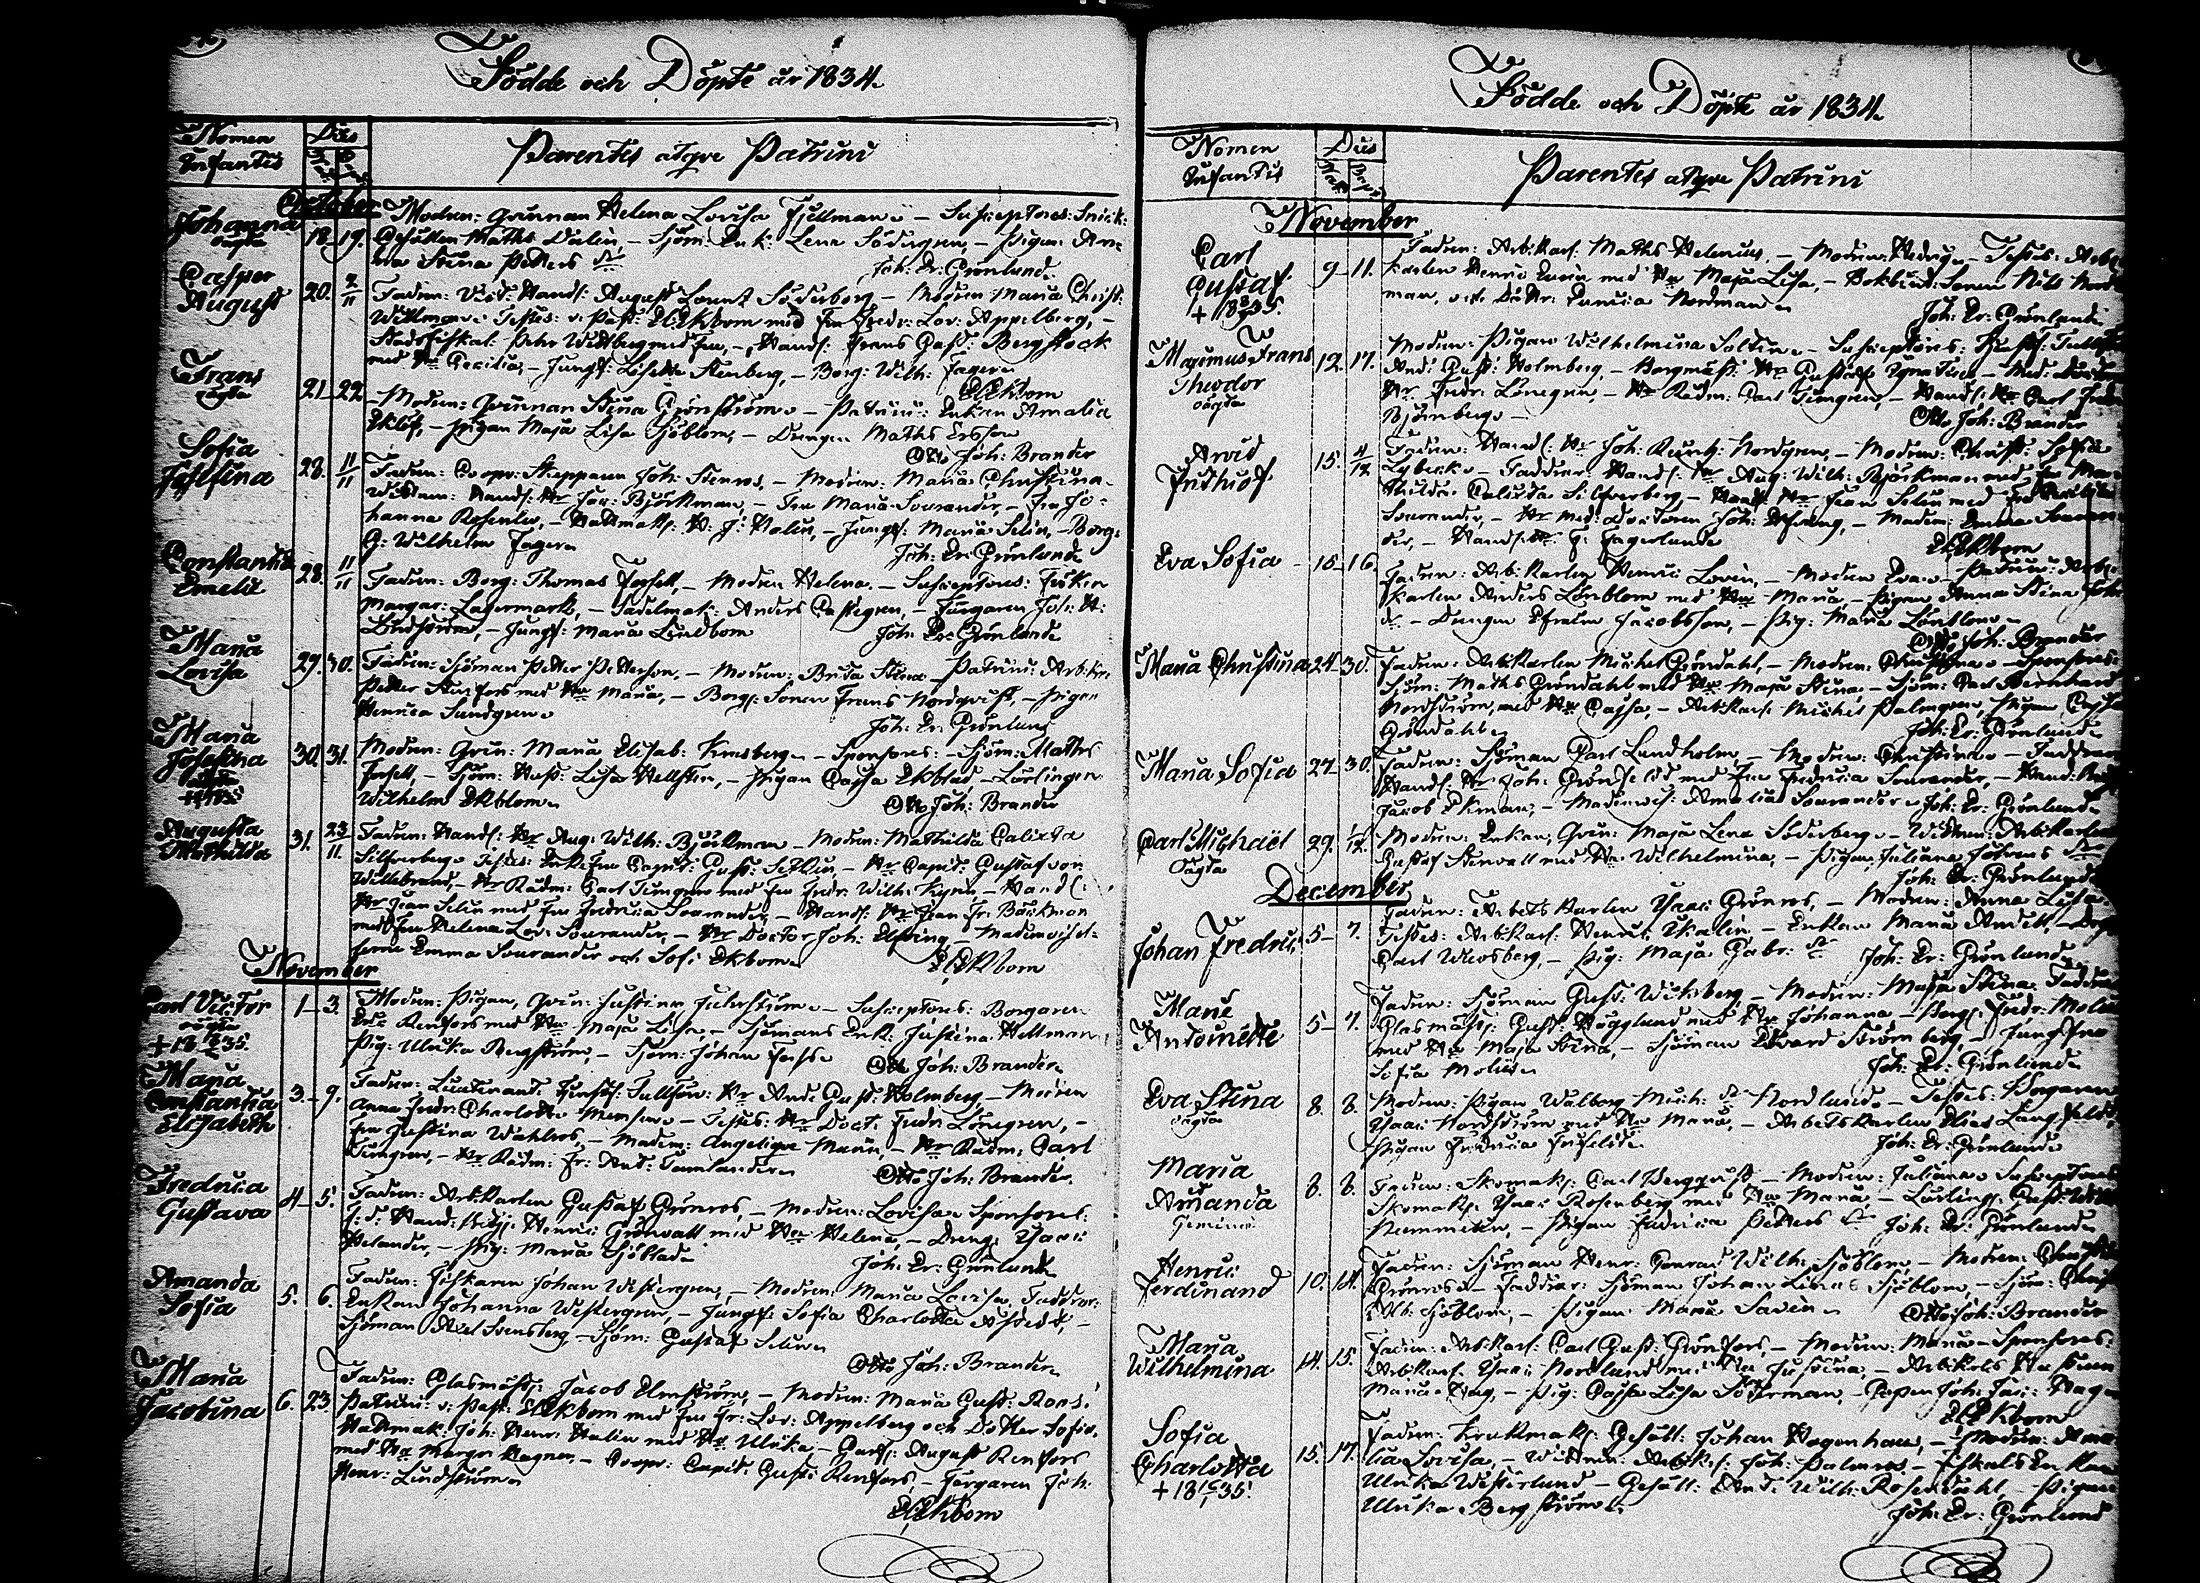 Födde och Döpte år 1834.
Nomen Infantis
Dies
Parentes atque Patrini
October
Johanna
oägta
18. 19.
Modren: Qvinnan Helena Lovisa Fjellman. – Susceptores: Snick:
Gesällen Maths Dalin, – Sjöm: Enk: Lena Södergren, – Pigan An-
na Stina Petters Dr
Joh: Er: Grönlund.
Casper
August
20. 2/11
Fadren: Vict: Handl: August Lorentz Söderborg – Modren Maria Christ:
Wittman. Testes: v: Past: Ekbom med Fru Fredr: Lov: Appelberg, –
Stadsfiskal: Petr Widtberg med Fru, – Handl: Frans Gust: Bergstock
med Hu Cecilia, – Jungf: Lisette Stenberg, – Borg: Wilh: Fager.
Ekbom
Frans
oägta
21. 22.
Modren: Qvinnan Stina Grönström. – Patrini: Enkan Amalia
Eklöf, – Pigan Maja Lisa Sjöblom, – Drengen Maths Ersson
Otto Joh: Brander
Sofia
Josefina
28. 11/11
Fadren: Coopv: Skeppare Joh: Stenros, – Modren: Maria Christina.
Wittnen: Handl: Hr Jac: Björkman, – Fru Maria Sourander, – Fru Jo-
hanna Rosenlew, – Hattmak: H: J: Malin, – Jungf: Maria Selin, – Borg:
G: Wilhelm Fager.
Joh: Er: Grönlund
Constantia
Emelie
28. 11/11
Fadren: Borg: Thomas Forsell, – Modren Helena. – Susceptores: Fröken
Margar: Lagermarck, – Sadelmak: Anders Castegren, – Färgaren Joh: H:
Lindström, – Jungf: Maria Lindbom
Joh: Er: Grönlund
Maria
Lovisa
29. 30.
Fadren: Sjöman Petter Petterson, – Modren: Brita Stina – Patrini: Arb:karl
Petter Stenfors med Hu Maria, – Borg: Sonen Frans Nordqvist, – Pigan
Henrica Sundgren.
Joh: Er: Grönlund
Maria
Josefina
30. 31.
Modren: Qvin: Maria Elisab: Kinsberg. – Sponsores: – Sjöm: Maths
Forsell, – Sjöm: Hust: Lisa Hellsten, – Pigan Cajsa Ekblad – Lärlingen
Wilhelm Ekblom.
Otto Joh: Brander
Augusta
Mathilda
31. 23/11.
Fadren: Handl: Hr Aug: Wilh: Björkman – Modren: Mathilda Calixta
Silfverberg. Testes: Enkefru Capit: Gust: Sellin, – Hr Capit: Gustaf von
Willebrand, – Hr Rådm: Carl Timgren med Fru Fredr: Wilh: Kyrn, – Handl:
Hr Jean Selin med Fru Fredrica Sourander, – Handl: Hr Jean Fr: Bäckman
med Fru Helena Lov: Sourander, – Hr Doctor Joh: Elfving – Mademoisel-
lerne Emma Sourander och Sofi Ekbom.
Ekbom
November
Carl Victor
oägta
1. 3.
Modren: Pigan, Qvin: Justina Julerström. – Susceptores: Borgaren
Eric Renfors med Hu Maja Lisa, – Sjömans Enk: Justina Hellman
Pig: Ulrika Bergström, – Sjöm: Johan Fast.
Otto Joh: Brander.
Maria
Constantia
Elisabeth
3. 9.
Fadren: Lieutenant: Hr And: Gust: Holmberg – Modren
Anna Fredr: Charlotta Menson. – Testes: Hr Doct: Fredr: Lönegren, –
Fru Justina Wahlros, – Madem: Angelique Munn, – Hr Rådm: Carl
Timgren, – Hr Rådm: Fr: Ant: Tamlander.
Otto Joh: Brander
Fredrica
Gustava
4. 5.
Fadren: Arb:karlen Gustaf Grönros, – Modren: Lovisa. Sponsores:
Henric Grönvall med Hu Helena, – Dreng: Isac
Helander, – Pig: Maria Sjöblad.
Joh: Er: Grönlund
Amanda
Sofia
5. 6.
Fadren: Fiskaren Johan Westergren, – Modren: Maria Lovisa. Faddrar:
Enkan Johanna Westergren, – Jungf: Sofia Charlotta –
Sjöman Axel Svensberg – Sjöm: Gustaf Selin.
Otto Joh: Brander
Maria
Jacobina
6. 23
Fadren: Glasmäst: Jacob Elmström, – Modren: Maria Gust: Roos.
Patrini: v: Past: Ekbom med Fru Fr: Lov: Appelberg och Dotter Sofie.
Hattmak: Joh: Henr: Malin med Hu Ulrika – Garf: August Renfors
med Hu Margr: Wagner, – Coopv: Capit: Gust: Renfors, – Färgaren Joh:
Henr: Lindström.
Ekbom
Födde och Döpte år 1834.
Nomen Infantis
Dies
Parentes atque Patrini
November
Carl
Gustaf
9. 11.
Fadren: Arb:karl: Maths Helenius, – Modren: Hedvig. – Testes: Arbets
karlen Henric med Hu Maja Lisa, – Bokbind: Sonen Nils Nord-
man, och Dottr: Eunicia Nordman.
Joh: Er: Grönlund.
Maximus Frans
Theodor
oägta
12. 17.
Modren: Pigan Wilhelmina Soldin. – Susceptores:
And: Gust: Holmberg, – Borgmäst: Hr Gustaf Ignatius – Med: Doct:
Hr Fredr: Lönegren, – Hr Rådm: Carl Timgren, – Handl: Hr Carl Fredr:
Björnberg. –
Otto Joh: Brander
Arvid
Fridthiof
15. 4/12
Fadren: Handl: Hr Joh: Reinh: Nordgren, – Modren: Christ: Sofia
Lybeck. – Faddrar: Handl: Hr Aug: Wilh: Björkman med Fru Ma-
thilda Calixta Silfverberg, – Handl: Hr Jean Selin med Fru Fredrica
Sourander, – Hr Med: Doctoren Joh: Elfving, – Madem: Emma Souran-
der, – Handl: Hr F: Fagerlund.
Ekbom
Eva Sofia
15. 16.
Fadren: Arb:karlen Henric Lovin, – Modren Eva. – Patrini: Arb:
karlen Anders Lönblom med Hu Maria – Pigan Anna Stina Joh:
Dr – Drengen Efraim Jacobsson, – Pig: Maria Lönblom. –
Otto Joh: Brander
Maria Christina
24. 30.
Fadren: Arb:karlen Michel Gröndahl, – Modren: Christina. – Sponsores:
Sjöm: Maths Gröndahl med Hu Maja Stina, – Sjöm: Carl Bernhard
Nordström, med Hu Cajsa, – Arb:karl: Michel Palmgren, Pigan Cajsa
Gröndahl.
Joh: Er: Grönlund
Maria Sofia
27. 30.
Fadren: Sjöman Carl Lundholm, – Modren: Christina. – Faddrar:
Handl: Hr Joh: Grönfelt med Fru Fredrica Sourander, – Hand:
Jacob Ekman, – Mademois: Amalia Sourander. Joh: Er: Grönlund
Carl Michaël
Oägta
29. 1/12.
Modren: Enkan, Qvin: Maja Lena Söderberg. – Wittnen: Arb:karlen
Gustaf Stenvall med Hu Wilhelmina, – Pigan Juliana Johans Dr
Joh: Er: Grönlund
December
Johan Fredric
5. 7.
Fadren: Arbets karlen Isaac Grönros, – Modren: Anna Lisa.
Testes: Arb:karl: Henric Malin, – Enkan Maria Andell, –
Carl Widsberg, – Pig: Maja Gabr: Dr
Joh: Er: Grönlund.
Marie
Antoinette
5. 7.
Fadren: Sjöman Gust: Wicksberg, – Modren: Maja Stina. Faddrar:
Glasmäst: Gust: Högglund med Hu Johanna – Borg: Fredr: Molin
med Hu Maja Stina, – Sjöman Edvard Strömberg, – Jungfru
Sofia Molin.
Joh: Er: Grönlund
Eva Stina
oägta
8. 8.
Modren: Pigan Walborg Mich: Dr Nordlund. – Testes: Borgaren
Isaac Nordström med Hu Maria, – Arbetskarlen Elias Långfeldt
Pigan Fredrica Forsfeldt.
Joh: Er: Grönlund
Maria
et
Amanda
Gemini
8. 8.
Fadren: Skomak: Carl Bergqvist – Modren: Juliana. Susceptores:
Skomak: Isaac Rosenberg med Hu Maria, – Lärling: Gust: Wilh:
Nummelin, – Pigan Fredricia Petters Dr Joh: Er: Grönlund
Henric
Ferdinand
10. 14.
Fadren: Sjöman Henr: Conrad Wilh: Sjöblom, – Modren: Christ:
Grönros. – Faddrar: Sjöman Johan Linus Sjöblom, – Sjöm:
Alb: Sjöblom, – Pigan: Maria Savén.
Otto Joh: Brander
Maria
Wilhelmina
14. 15.
Fadren: Arb:karl: Carl Gust: Grönfors, – Modren: Maria – Sponsores:
Arb:karl: Isaac Nordlund med Hu Justina, – Arb:karls Hustrun
Maria Hag, – Pig: Cajsa Lisa Söderman, – Gossen Joh: Jac: Hag
Ekbom
Sofia
Charlotta
15. 17.
Fadren: Krukmak: Gesäll: Johan Hagenhau, – Modren: Ama-
lia Lovisa, – Wittnen: Arb:k: Joh: Palmros – Fiskals Enkan
Ulrika Westerlund – Gesäll: And: Wilh: Rosendahl, – Pigan
Ulrika Bergström.
Joh: Er: Grönlund